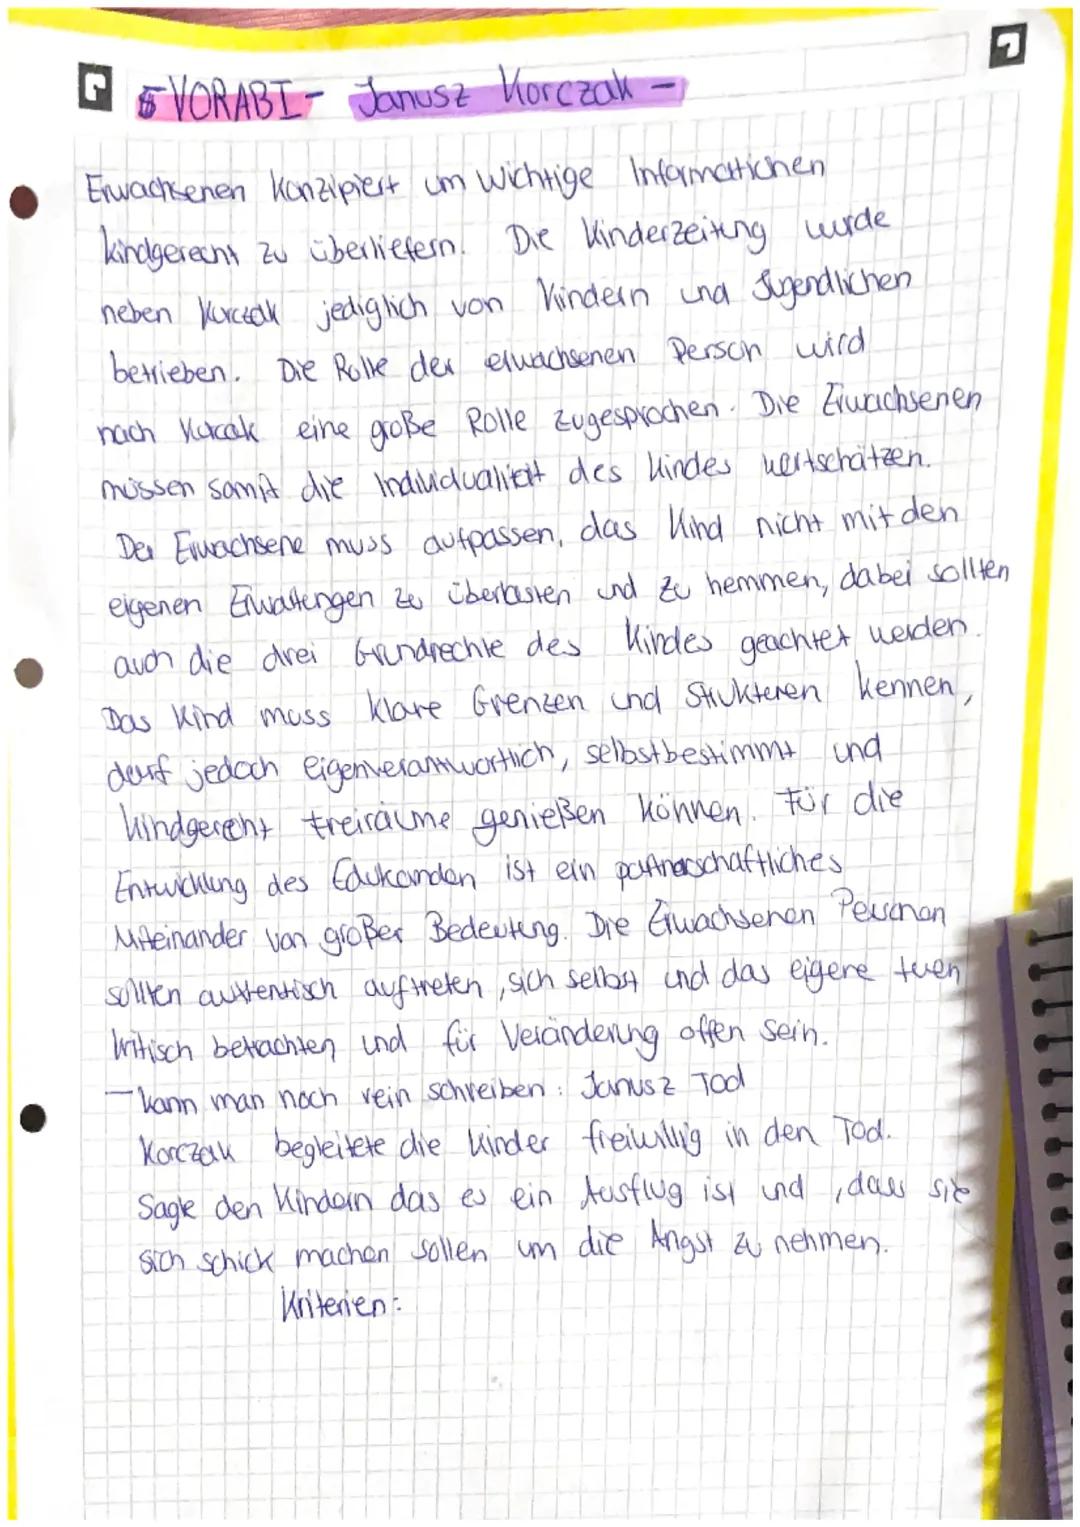 VORABI - Janusz Korczak -
Erwachsenen Konzipiert um wichtige Informationen
kindgerecht zu überliefern. Die Kinderzeitung wurde
neben Korczak jediglich von Kindern und Jugendlichen
betrieben. Die Rolle der erwachsenen Person wird
nach Korcak eine große Rolle zugesprochen. Die Erwachsenen
müssen somit die Individualität des Kindes wertschätzen.
Der Erwachsene muss aufpassen, das Kind nicht mit den
eigenen Erwartungen zu überlasten und zu hemmen, dabei sollten
auch die drei Grundrechte des Kindes geachtet werden.
Das Kind muss klare Grenzen und Strukturen kennen,
darf jedoch eigenverantwortlich, selbstbestimmt und
kindgerecht Freiräume genießen können. Für die
Entwicklung des Edukanden ist ein partnerschaftliches
Miteinander von großer Bedeutung. Die Erwachsenen Personen
sollten authentisch auftreten, sich selbst und das eigene tuen
kritisch betrachten und für Veränderung offen sein.
- kann man noch rein schreiben: Janusz Tod
Korczak begleitete die Kinder freiwillig in den Tod.
Sagte den Kindern das es ein Ausflug ist und, dass sie
sich schick machen sollen um die Angst zu nehmen.
Kriterien: